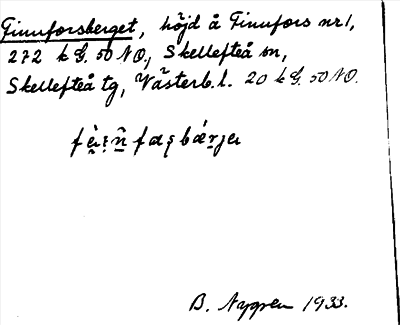 Finnforsberget, höjd å Finnfors nr 1,
272 k G. 50 NO, Skellefteå sn,
Skellefteå tg, Västerb. l. 20 k G. 50 NO.
B. Nygren 1933.